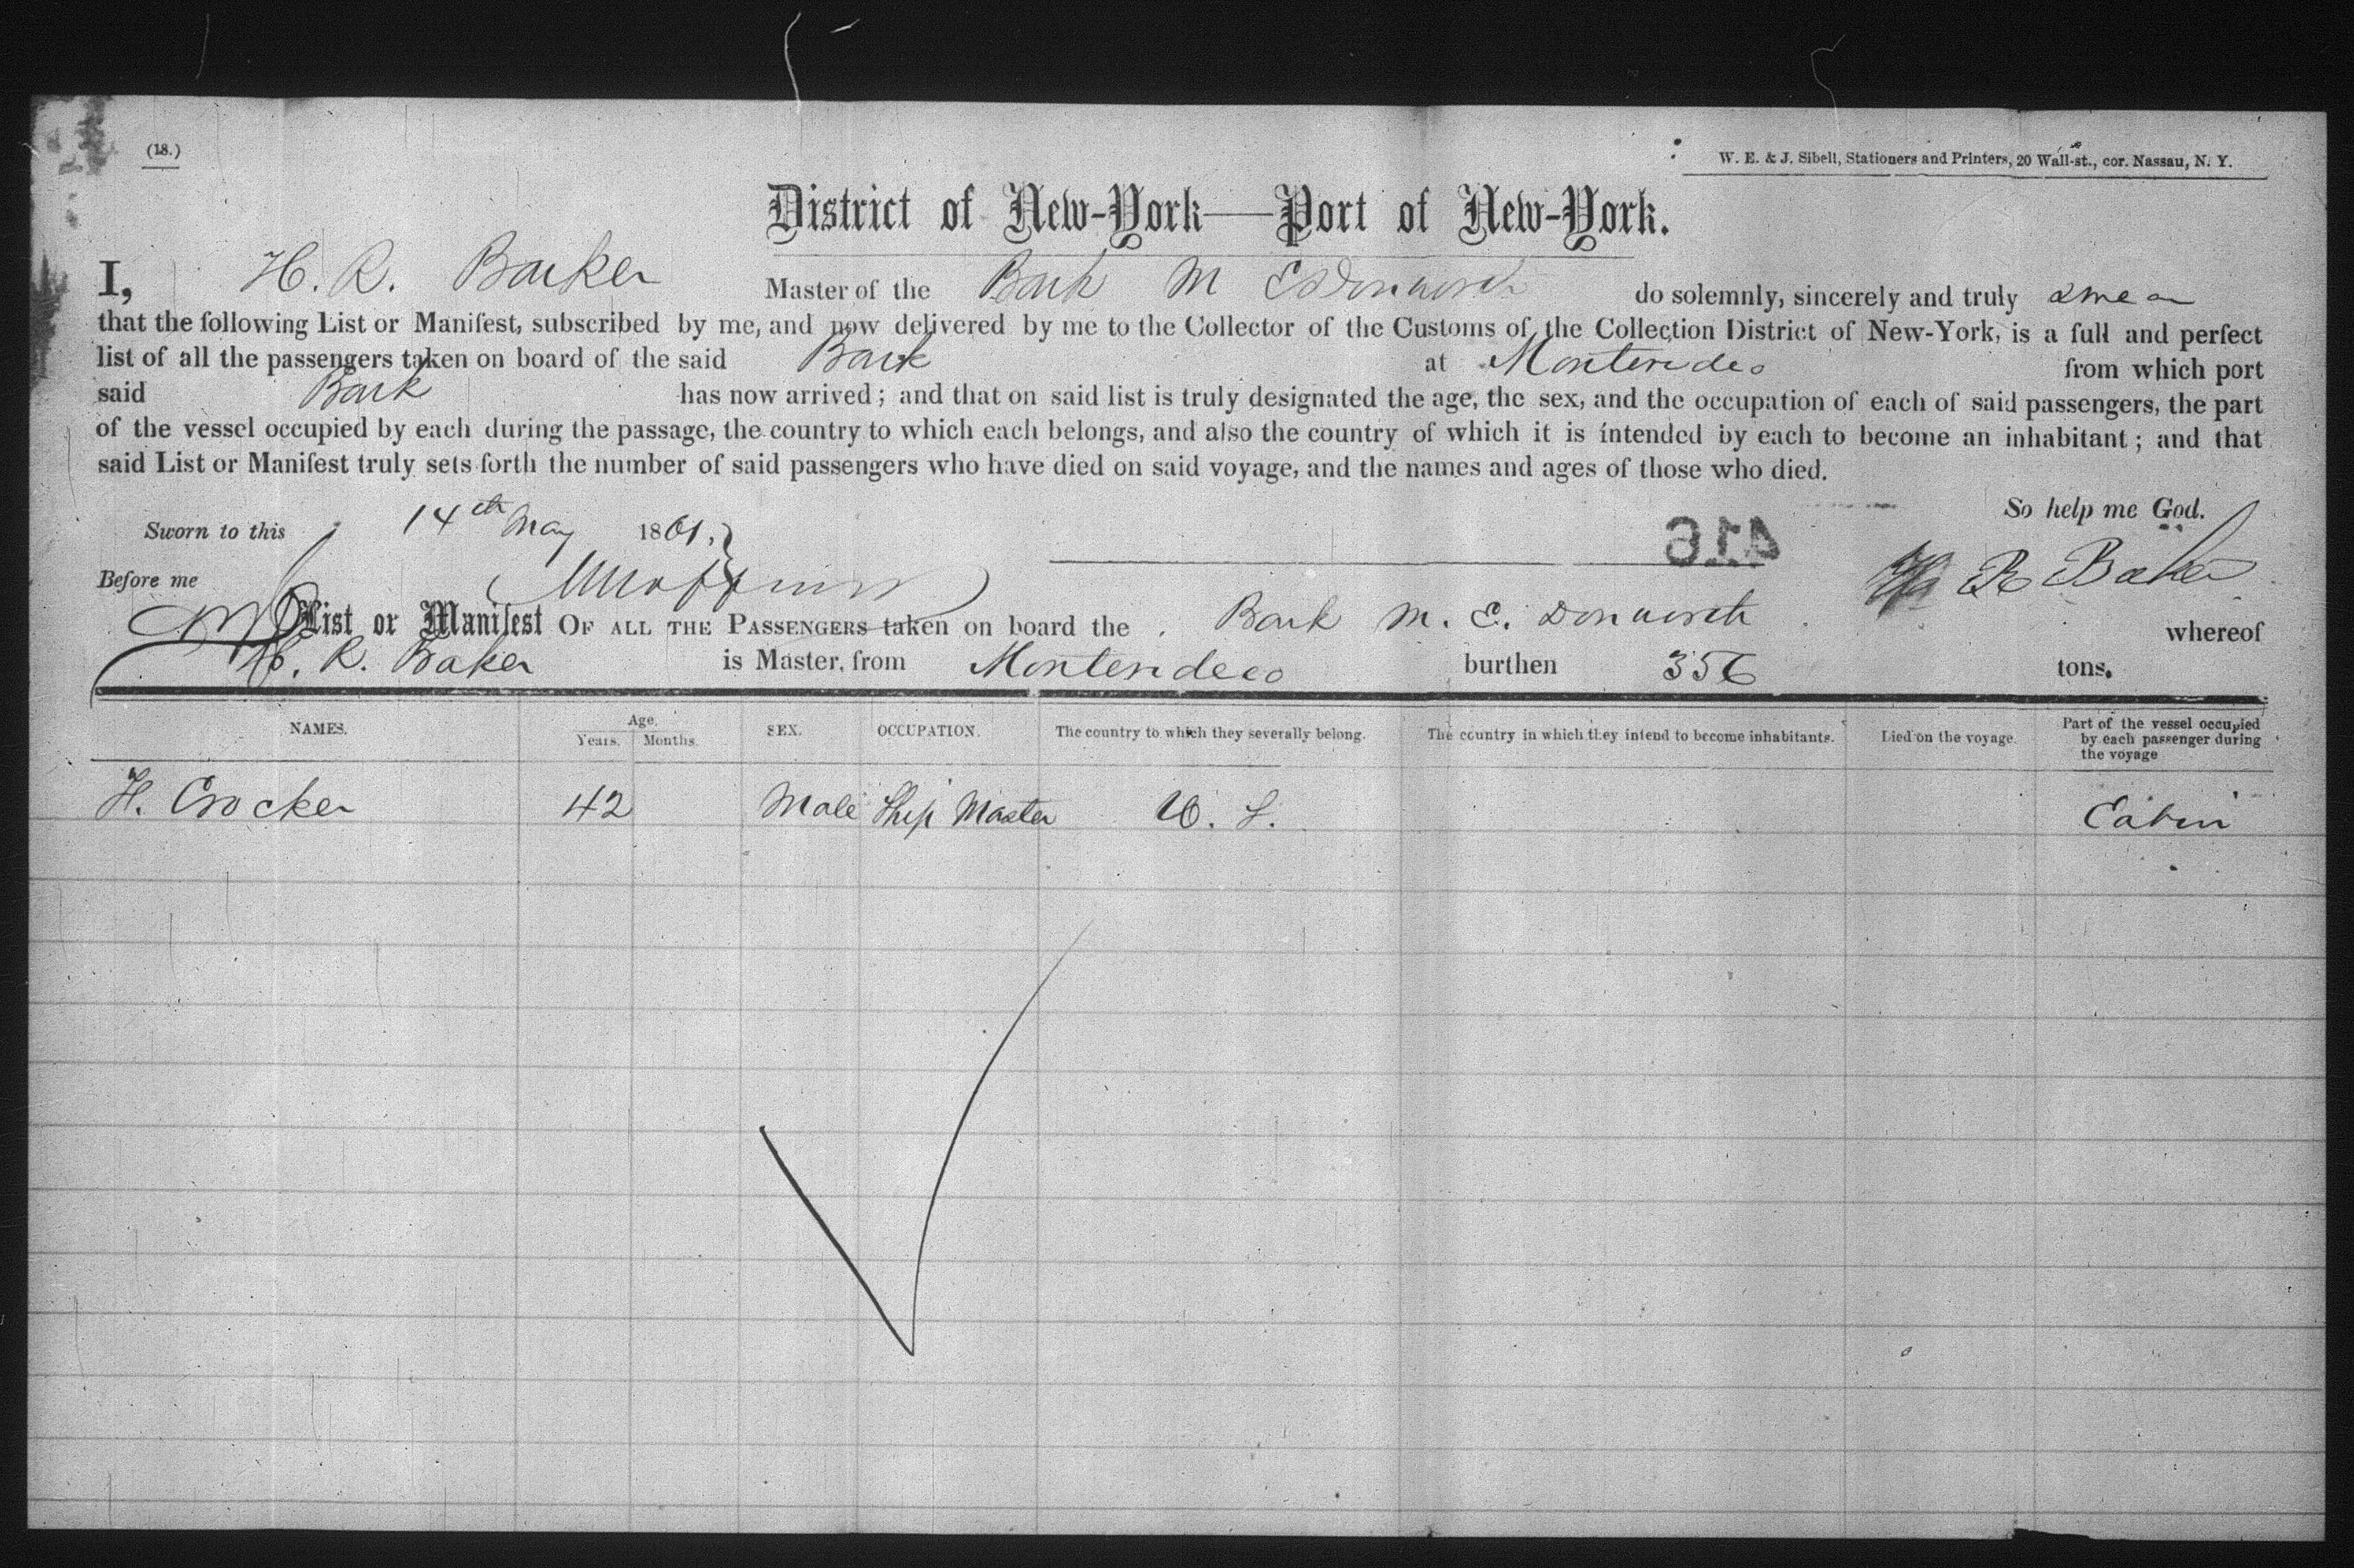 (18.)
W. E. & J. Sibell, Stationers and Printers, 20 Wall-st., cor. Nassau, N. Y.
District of New-York—Port of New-York.
I, H. R. Barker Master of the Bark M E Donworth do solemnly, sincerely and truly swear
that the following List or Manifest, subscribed by me, and now delivered by me to the Collector of the Customs of the Collection District of New-York, is a full and perfect
list of all the passengers taken on board of the said Bark at Montevideo from which port
said Bark has now arrived; and that on said list is truly designated the age, the sex, and the occupation of each of said passengers, the part
of the vessel occupied by each during the passage, the country to which each belongs, and also the country of which it is intended by each to become an inhabitant; and that
said List or Manifest truly sets forth the number of said passengers who have died on said voyage, and the names and ages of those who died.
So help me God.
Sworn to this 14th May 1861,
416
Before me
H R Baker
List or Manifest OF ALL THE PASSENGERS taken on board the Bark M. E. Donworth whereof
H. R. Baker is Master, from Montevideo burthen 356 tons.
NAMES. Age. Years. Months. SEX. OCCUPATION. The country to which they severally belong. The country in which they intend to become inhabitants. Died on the voyage. Part of the vessel occupied by each passenger during the voyage
H. Crocker 42 Male Ship Master U. S. Cabin